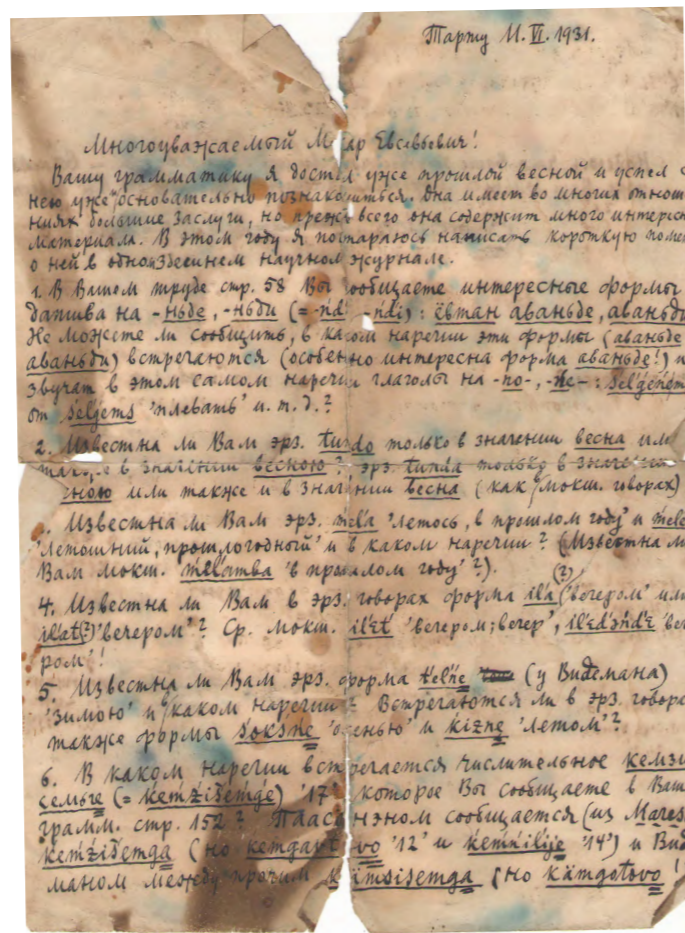 Тарту 11. VI. 1931.
Многоуважаемый Макар Евсевьевич!
Вашу грамматику я достал уже прошлой весной и успел с
нею уже основательно познакомиться. Она имеет во многих отнош
ниях большие заслуги, но прежде всего она содержит много интересн
материала. В этом году я постараюсь написать короткую поме
о ней в одном здешнем научном журнале.
1. В Вашом труде стр. 58 Вы сообщаете интересные формы
датива на -ньде, -ньди (= -ńd' ńdi): ёвтан аваньде, аваньди
Не можете ли сообщить, в каком наречии эти формы (аваньде
аваньди) встречаются (особенно интересна форма аваньде!) и
звучат в этом самом наречии глаголы на -no-, -ńe-: śelgeńem
от śelgems 'плевать' и. т. д.?
2. Известна ли Вам эрз. tundo только в значении весна или
также в значении весною? эрз. tunda только в значении
сною или также и в значении весна (как мокш. говорах)
. Известна ли Вам эрз. mela 'летось, в прошлом году' и mele
'летошний, прошлогодный' и в каком наречии? (Известна ли
Вам мокш. melamba 'в прошлом году'?).
4. Известна ли Вам в эрз. говорах форма ila (?) ('вечером' или
ilat (?) 'вечером'? Ср. мокш. ilet 'вечером; вечер', iled'ende 'веч
ром'!
5. Известна ли Вам эрз. форма t'elńe (у Видемана)
'зимою' и каком наречии? Встречаются ли в эрз. говора
также формы śokśńe 'осенью' и kizńe 'летом'?
6. В каком наречии встречается числительное кемзи
семьге (= kemźiśemge) '17' которое Вы сообщаете в Ваш
грамм. стр. 152? Паасонэном сообщается (из Mares
kemźiśemga (но kemgavtovo '12' и kemńilije '14') и Вид
маном между прочим kämsiśemga (но kämgotovo!